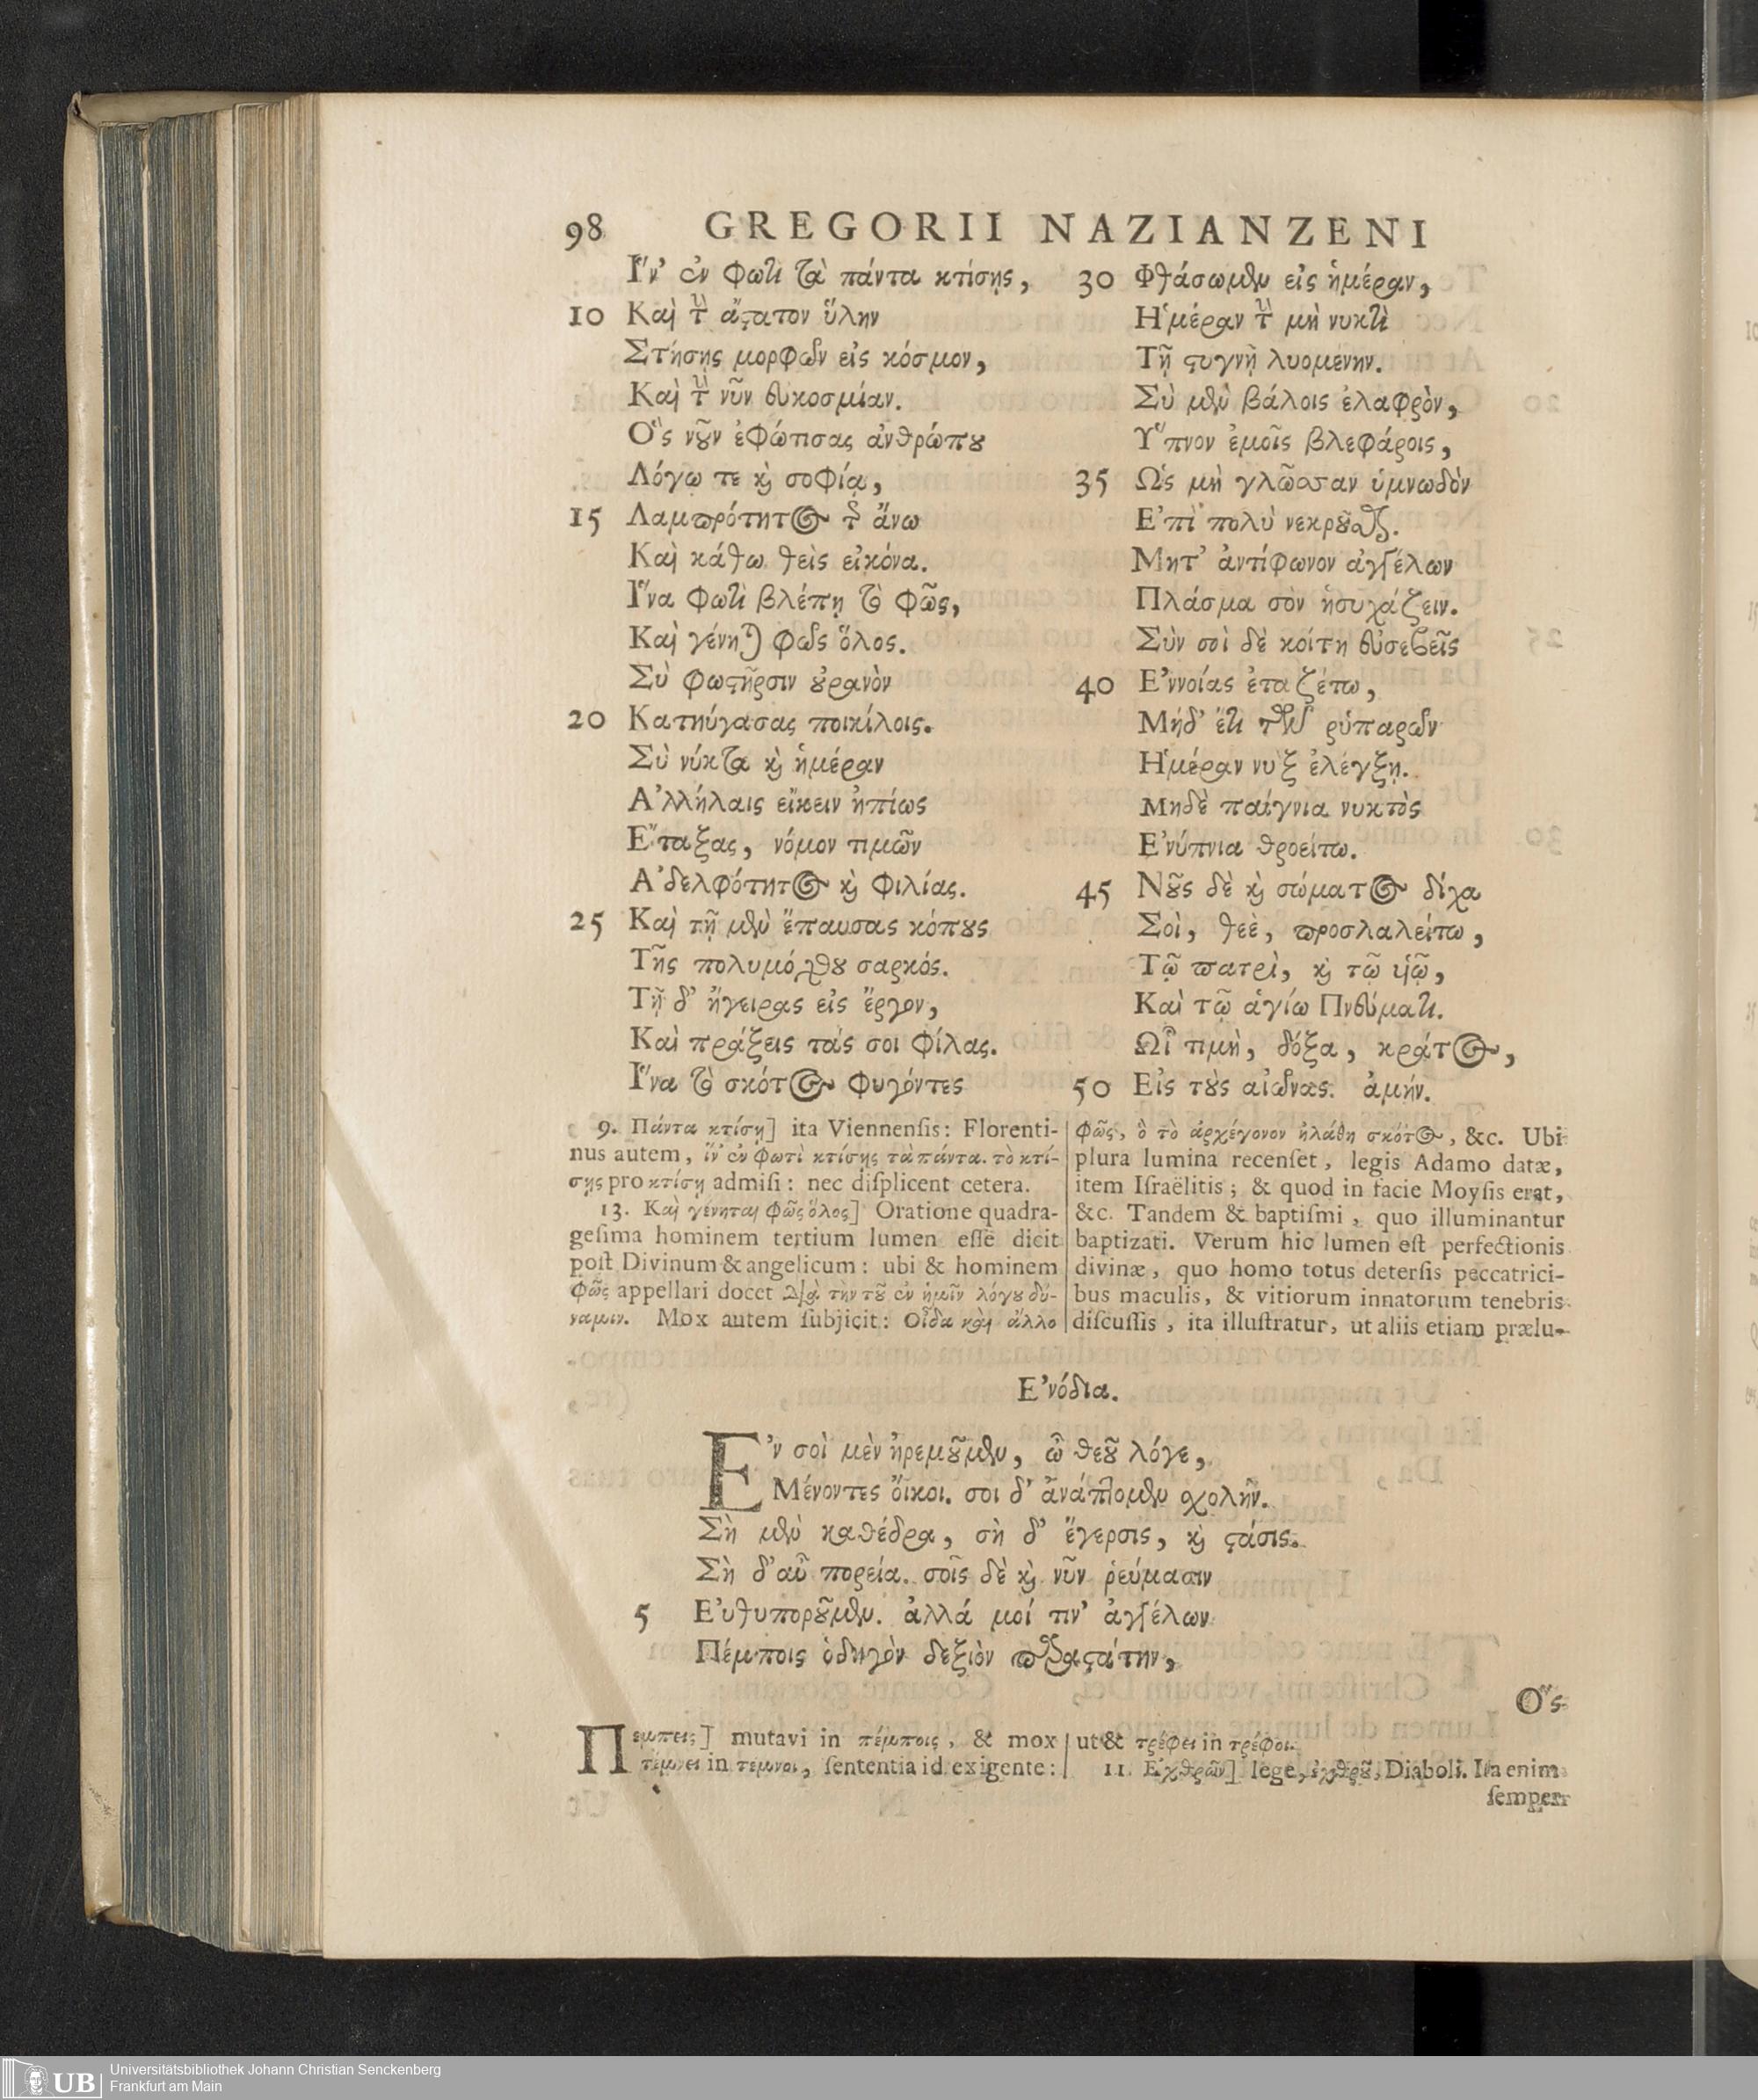 98 GREGORII NAZIANZENI
Ἵν' ἐν φωτὶ τὰ πάντα κτίσῃς,
10 Καὶ τὴν ἄστατον ὕλην
Στήσῃς μορφῶν εἰς κόσμον,
Καὶ τὴν νῦν εὐκοσμίαν.
Ὃς νοῦν ἐφώτισας ἀνθρώπου
Λόγῳ τε καὶ σοφίᾳ,
15 Λαμπρότητος τῆς ἄνω
Καὶ κάτω θεὶς εἰκόνα.
Ἵνα φωτὶ βλέπῃ τὸ φῶς,
Καὶ γένηται φῶς ὅλος.
Σὺ φωστῆρσιν οὐρανὸν
20 Κατηύγασας ποικίλοις.
Σὺ νύκτα καὶ ἡμέραν
Ἀλλήλαις εἴκειν ἠπίως
Ἔταξας, νόμον τιμῶν
Ἀδελφότητος καὶ φιλίας.
25 Καὶ τῇ μὲν ἔπαυσας κόπους
Τῆς πολυμόχθου σαρκός.
Τῇ δ' ἤγειρας εἰς ἔργον,
Καὶ πράξεις τάς σοι φίλας.
Ἵνα τὸ σκότος φυγόντες
30 Φθάσωμεν εἰς ἡμέραν,
Ἡμέραν τὴν μὴ νυκτὶ
Τῇ στυγνῇ λυομένην.
Σὺ μὲν βάλοις ἐλαφρὸν,
Ὕπνον ἐμοῖς βλεφάροις,
35 Ὡς μὴ γλῶσσαν ὑμνῳδὸν
Ἐπὶ πολὺ νεκροῦσθαι.
Μητ' ἀντίφωνον ἀγγέλων
Πλάσμα σὸν ἡσυχάζειν.
Σὺν σοὶ δὲ κοίτη εὐσεβεῖς
40 Ἐννοίας ἐταζέτω,
Μήδ' ἔτι τῶν ῥύπαρῶν
Ἡμέραν νὺξ ἐλέγξῃ.
Μηδὲ παίγνια νυκτὸς
Ἐνύπνια θροείτω.
45 Νοῦς δὲ καὶ σώματος δίχα
Σοὶ, θεὲ, προσλαλείτω,
Τῷ πατρὶ, καὶ τῷ υἱῷ,
Καὶ τῷ ἁγίῳ Πνεύματι.
Ὧι τιμὴ, δόξα, κράτος,
50 Εἰς τοὺς αἰῶνας. ἀμήν.
9. Πάντα κτίσῃ] ita Viennensis: Florenti-
nus autem, ἵν' ἐν φωτὶ κτίσῃς τὰ πάντα. τὸ κτί-
σῃς pro κτίσῃ admisi: nec displicent cetera.
13. Καὶ γένηται φῶς ὅλος] Oratione quadra-
gesima hominem tertium lumen esse dicit
post Divinum & angelicum: ubi & hominem
φῶς appellari docet διὰ τὴν τοῦ ἐν ἡμῖν λόγου δύ-
ναμιν. Mox autem subjicit: Οἶδα καὶ ἄλλο
φῶς, ὃ τὸ ἀρχέγονον ἠλάθη σκότος, &c. Ubi
plura lumina recenset, legis Adamo datæ,
item Israëlitis; & quod in facie Moysis erat,
&c. Tandem & baptismi, quo illuminantur
baptizati. Verum hic lumen est perfectionis
divinæ, quo homo totus detersis peccatrici-
bus maculis, & vitiorum innatorum tenebris
discussis, ita illustratur, ut aliis etiam prælu-
Ἐνόδια.
Ἐν σοὶ μὲν ἠρεμοῦμεν, ὦ θεοῦ λόγε,
Μένοντες οἴκοι. σοι δ' ἀνάπτομεν σχολήν.
Σὴ μὲν καθέδρα, σὴ δ' ἔγερσις, καὶ στάσις.
Σὴ δ' αὖ πορεία. σοῖς δὲ καὶ νῦν ῥεύμασιν
5 Εὐθυποροῦμεν. ἀλλά μοί τιν' ἀγγέλων
Πέμποις ὁδηγὸν δεξιὸν παραστάτην,
Ὃς
Πεμπεις] mutavi in πέμποις, & mox
τέμνει in τέμνοι, sententia id exigente:
ut & τρέφει in τρέφοι.
11. Ἐχθρῶν] lege, ἐχθροῦ, Diaboli. Ita enim
semper
UB Universitätsbibliothek Johann Christian Senckenberg
Frankfurt am Main